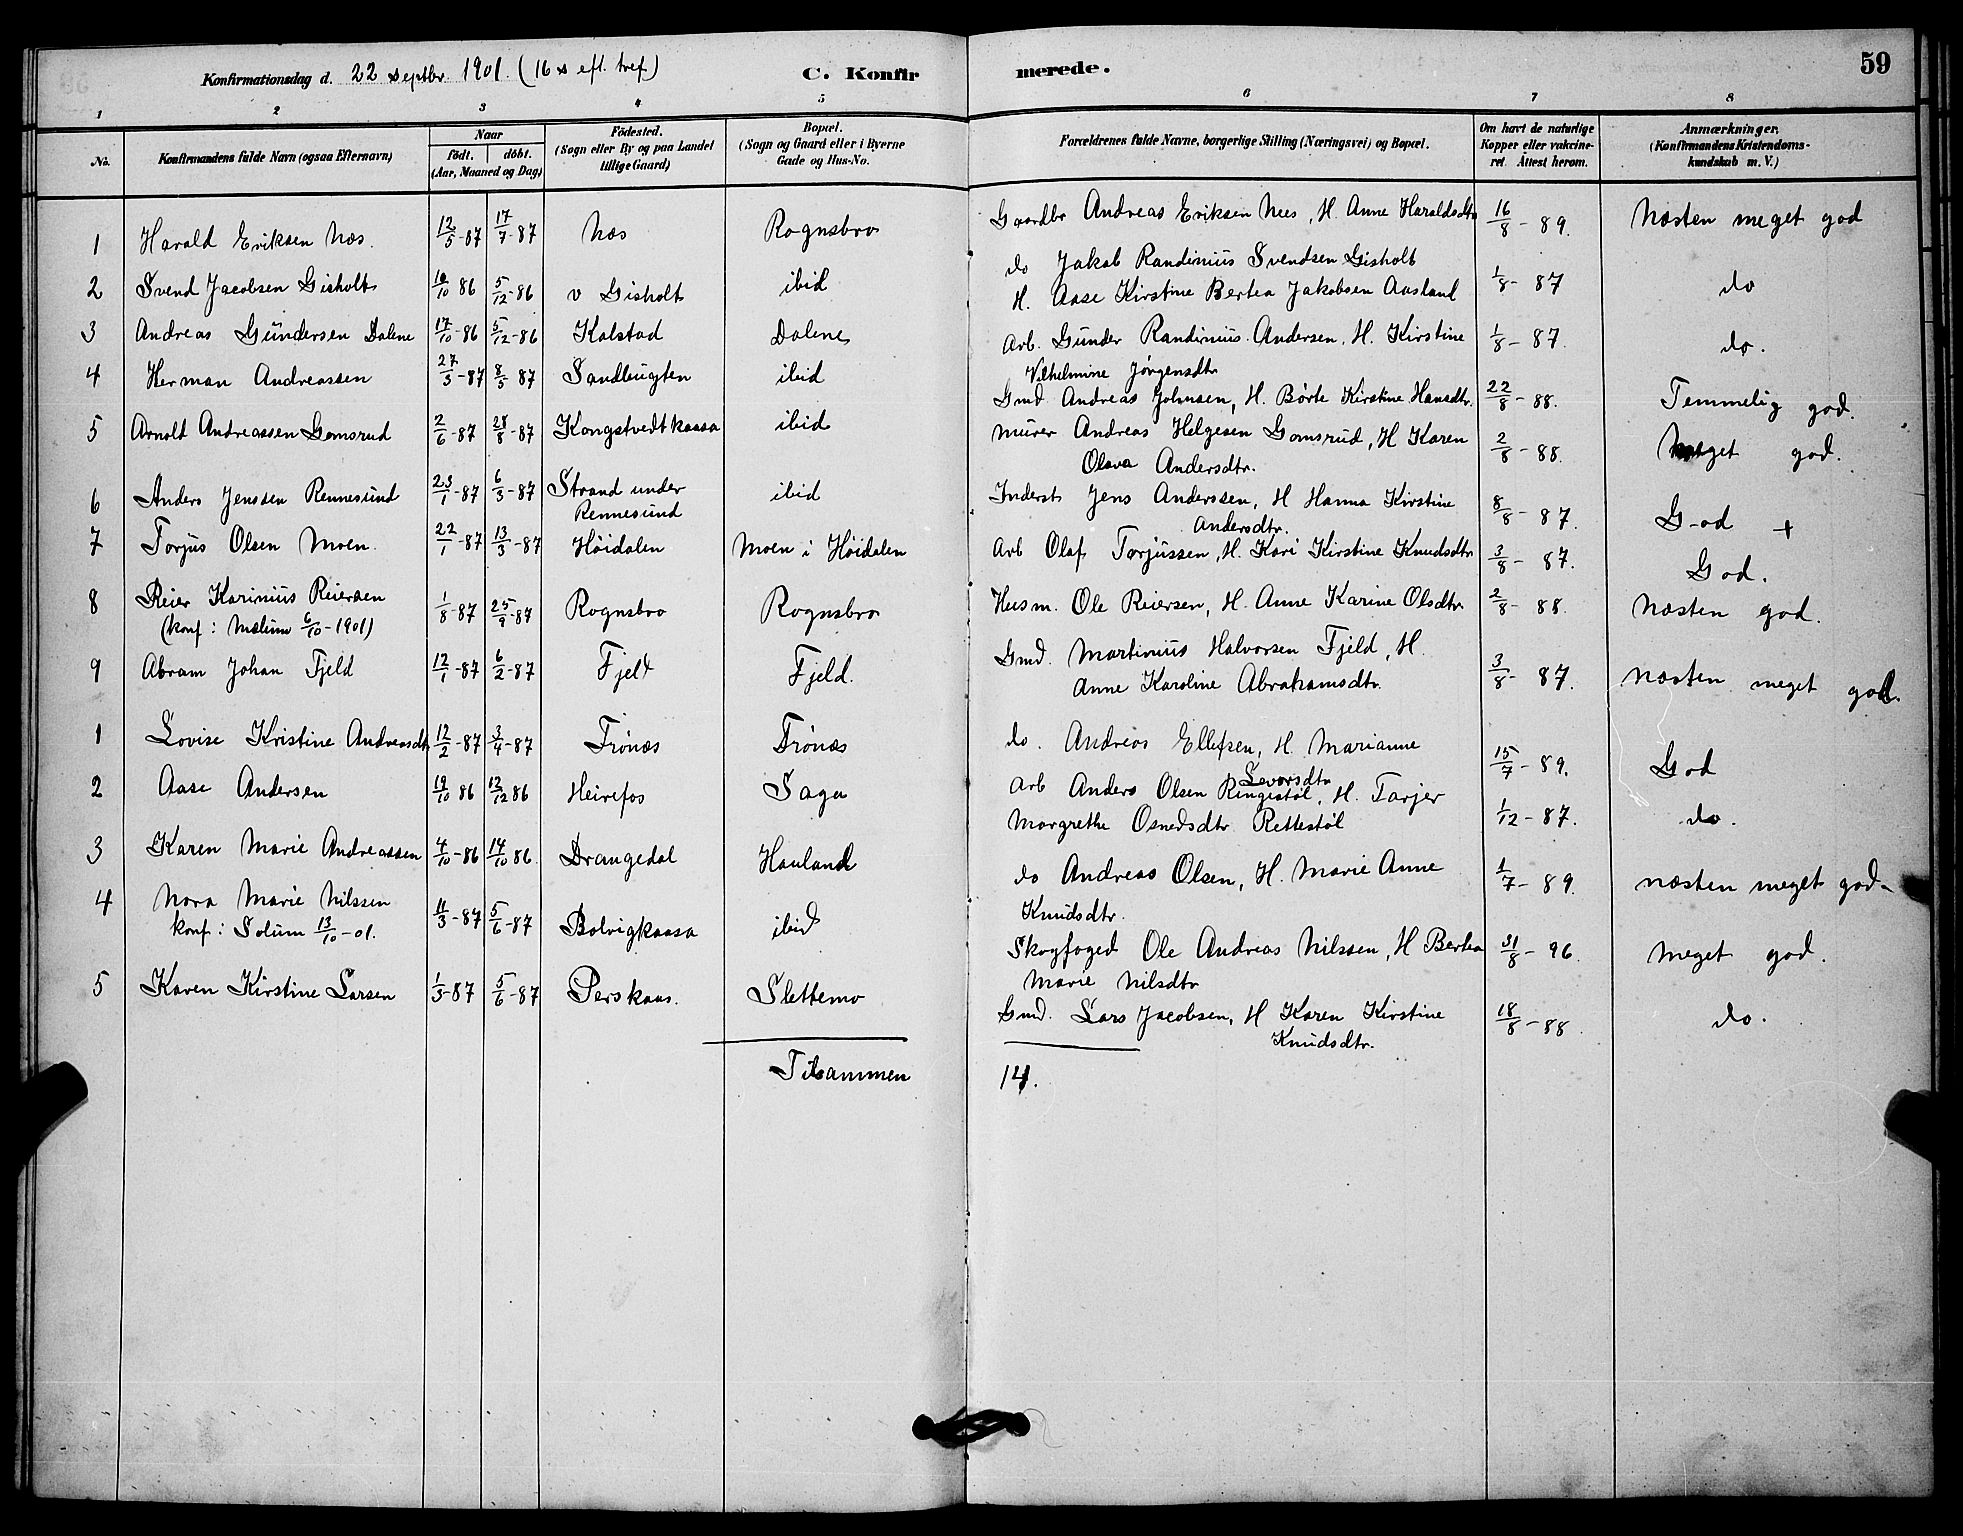 Konfirmationsdag d. 22 septbr. 1901. (16 s efl. tref.) C. Konfirmerede. 59
1 2 3 4 5 6 7 8
No. Konfirmandens fulde Navn (ogsaa Efternavn) Naar födt. döbt. (Aar, Maaned og Dag) Födested. (Sogn eller By og paa Landet tillige Gaard) Bopæl. (Sogn og Gaard eller i Byerne Gade og Hus-No. Forældrenes fulde Navne, borgerlige Stilling (Næringsvei) og Bopæl. Om havt de naturlige Kopper eller vakcineret. Attest herom. Anmærkninger. (Konfirmandens Kristendomskundskab m. V.)
1 Harald Eriksen Næs. 12/5-87 17/7-87 Næs Rognsbro Gaardbr Andreas Eriksen Nees, H. Anne Haraldsdtr 16/8-89. Næsten meget god
2 Svend Jacobsen Gisholt 10/10 86 5/12-86 v Gisholt ibid do Jakob Randinius Svendsen Gisholt
H. Aase Kirstine Bertea Jakobsen Aasland 1/8-87 do
3 Andreas Gundersen Dalene 17/10-86 5/12-86 Kalstad Dalene Arb. Gunder Randinius Andersen, H. Kirstine
Vilhelmine Jörgensdtr 1/8-87. do.
4 Herman Andreassen 27/3-87 8/5 87 Sandbugten ibid Gmd Andreas Johnsen, H. Börte Kirstine Hansdtr. 22/8-88. Temmelig god.
5 Arnold Andreassen Gomsrud 2/6-87 28/8-87 Kongstvedtkaasa ibid Murer Andreas Helgesen Gomsrud, H Karen
Olava Andersdtr. 2/8-88. Meget god.
6 Anders Jenssen Rennesund 23/1-87 6/3-87 Strand under
Rennesund ibid Inderst Jens Anderssen, H Hanna Kirstine
Andersdtr. 8/8-87. God +
7 Torjus Olsen Moen 22/1-87 13/3-87 Höidalen Moen i Höidalen Arb Olaf Torjussen, H. Kari Kirstine Knudsdtr 3/8-87. God.
8 Reier Karinius Reiersen
(konf: Mælum 6/10-1901) 1/8-87 25/9-87 Rognsbro Rognsbro Husm. Ole Reiersen, H. Anne Karine Olsdtr. 2/8-88. Næsten god.
9 Abram Johan Fjeld 12/1-87 6/2-87 Fjeld Fjeld. Gmd. Martinius Halvorsen Fjeld, H.
Anne Karoline Abrahamsdtr. 3/8-87. Næsten meget god.
1 Lovise Kristine Andreasdtr 12/2-87 3/4-87 Frönæs Frönæs do. Andreas Ellefsen, H. Marianne
Sevorsdtr 15/7-89. God
2 Aase Andersen 19/10 86 12/12 86 Heirefos Saga Arb Anders Olsen Ringestöl, H. Tarjer
Margrethe Osnedsdtr Rettestöl 1/12-87. do.
3 Karen Marie Andreassen 4/10-86 14/10 86. Drangedal Hauland do Andreas Olsen, H. Marie Anne
Knudsdtr. 1/7-89. næsten meget god-
4 Nora Marie Nilssen
konf: Solum 13/10-01. 11/3-87 5/6-87 Bolvigkaasa ibid Skogfoged Ole Andreas Nilssen, H Bertea
Marie Nilsdtr 31/8-96. Meget god.
5 Karen Kirstine Larsen 1/3-87 5/6-87 Perskaas. Slettemo Gmd. Lars Jacobsen, H Karen Kirstine
Knudsdtr. 18/8-88. do.
Tilsammen 14.